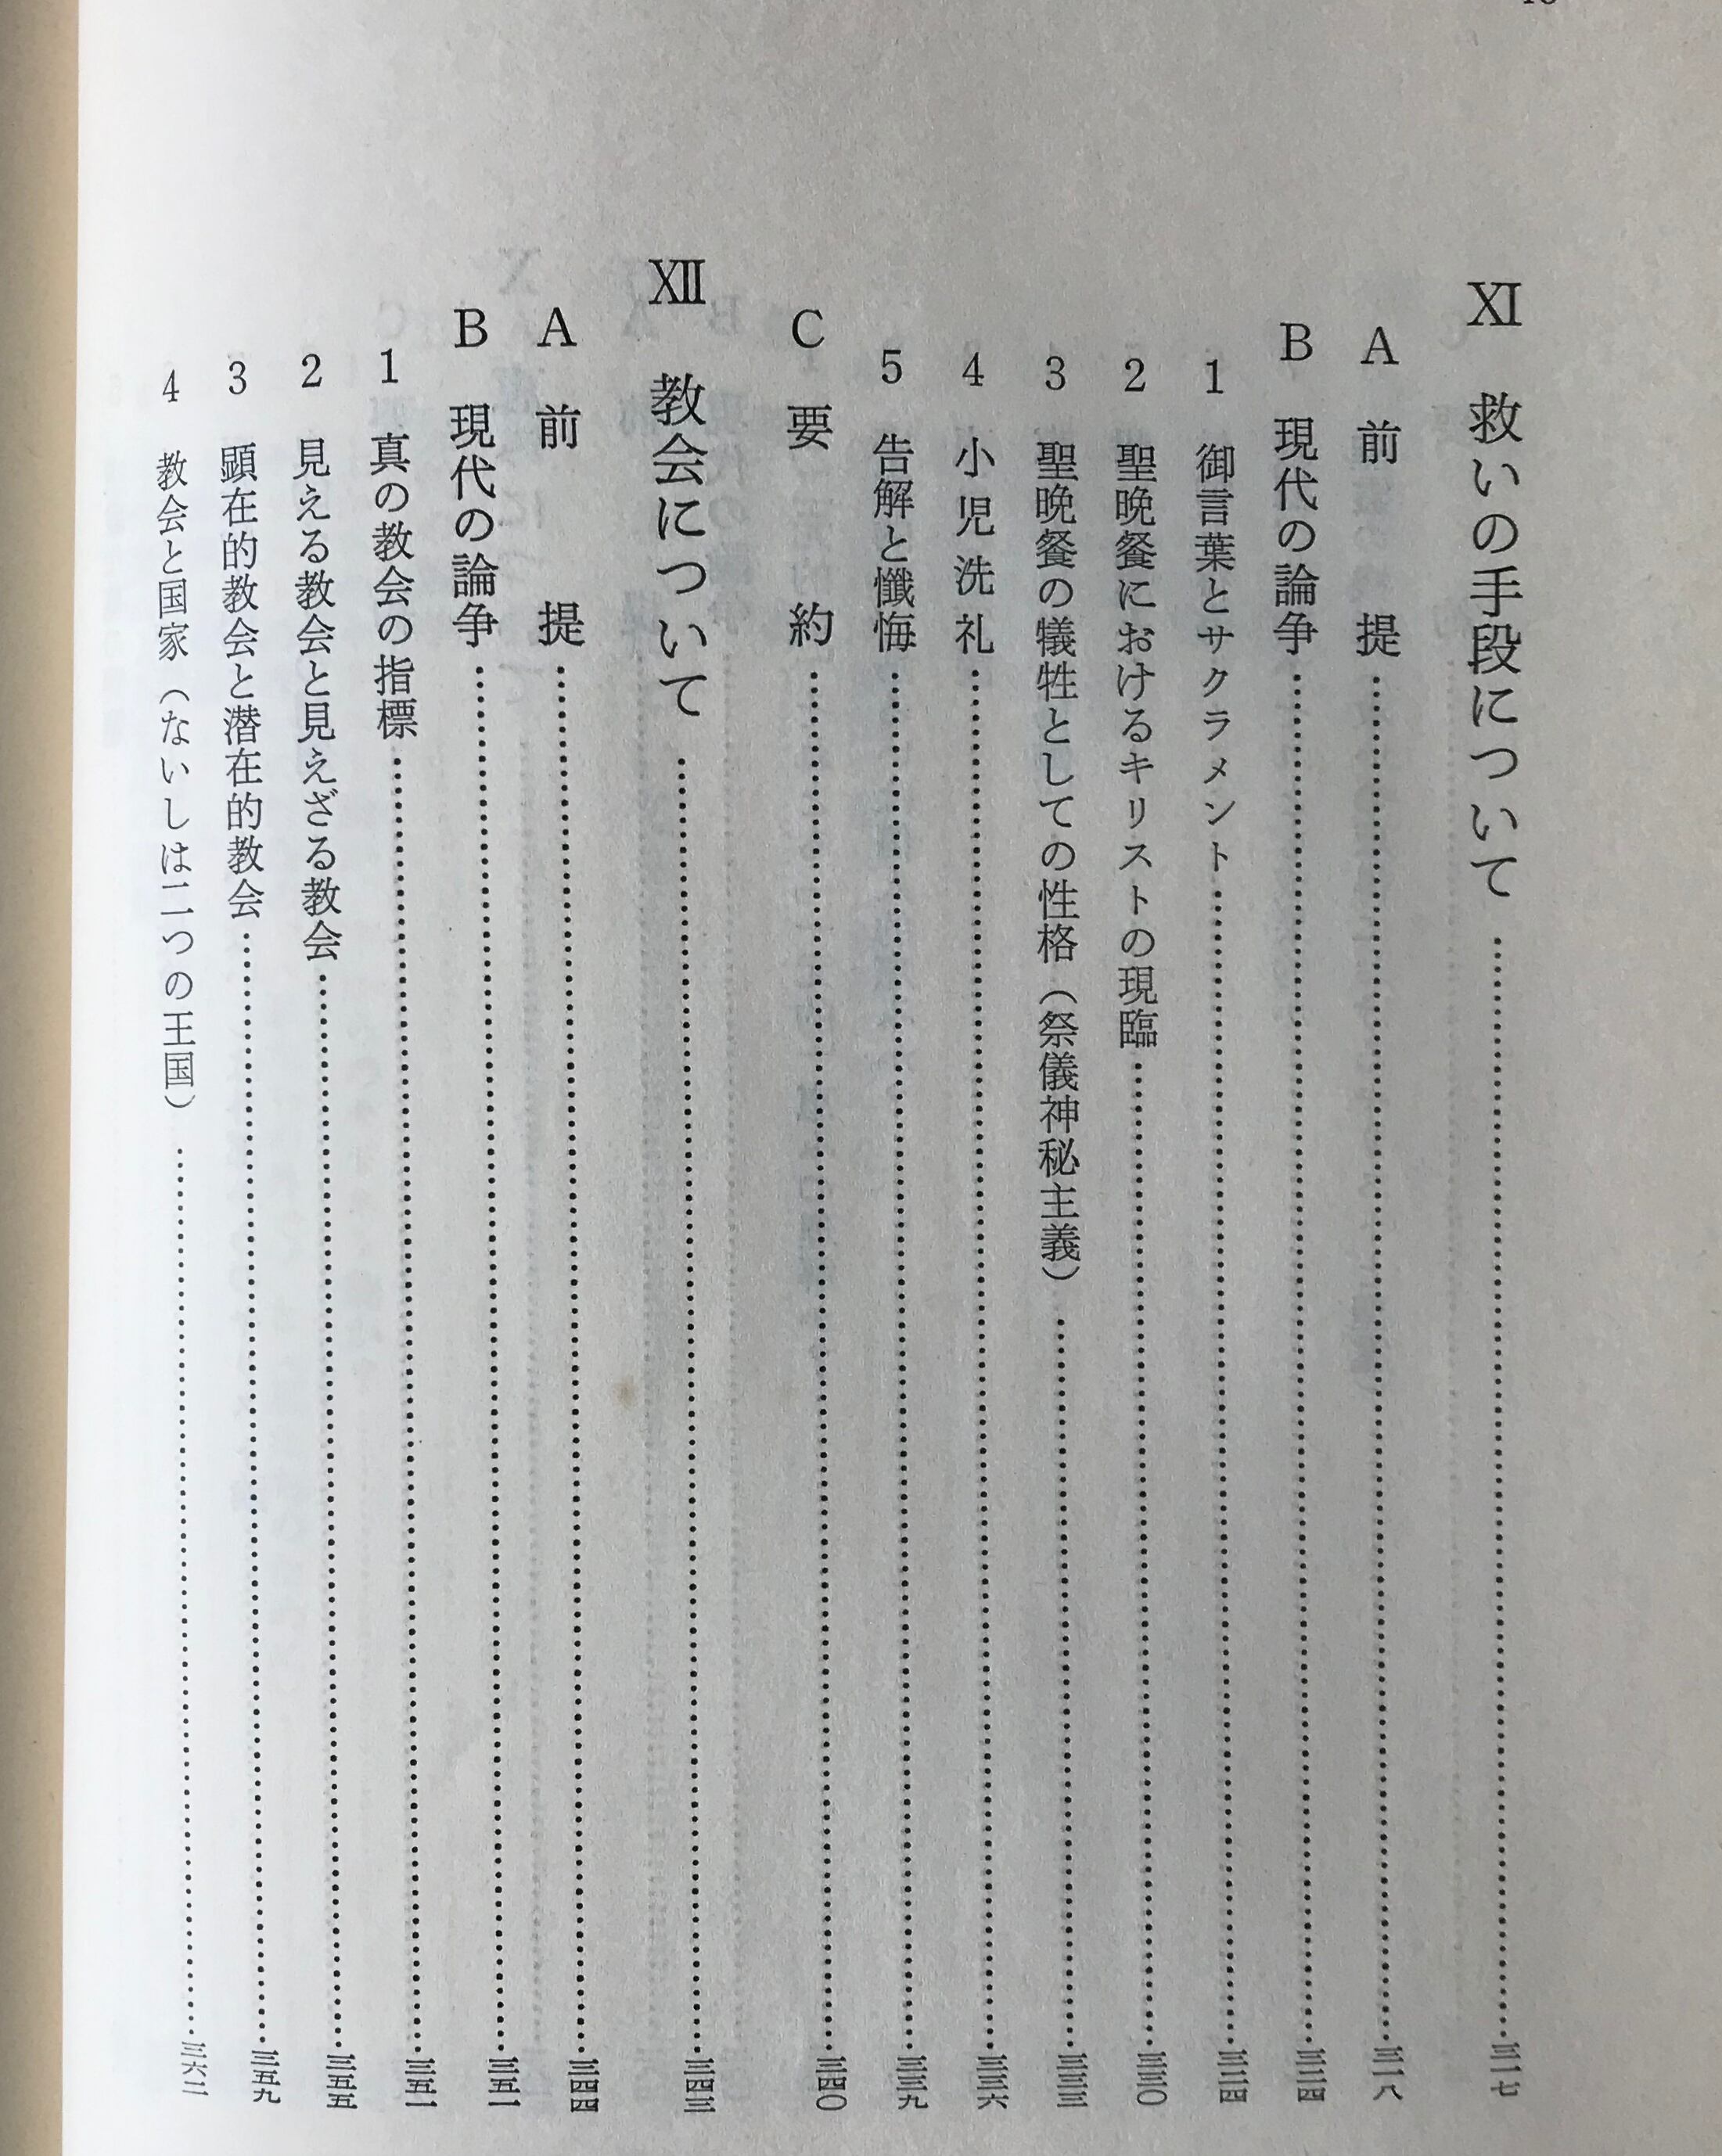 XI 救いの手段について……三一七
A 前提……三一八
B 現代の論争……三二四
1 御言葉とサクラメント……三二四
2 聖晩餐におけるキリストの現臨……三三〇
3 聖晩餐の犠牲としての性格（祭儀神秘主義）……三三三
4 小児洗礼……三三六
5 告解と懺悔……三三九
C 要約……三四〇
XII 教会について……三四三
A 前提……三四四
B 現代の論争……三五一
1 真の教会の指標……三五一
2 見える教会と見えざる教会……三五五
3 顕在的教会と潜在的教会……三五九
4 教会と国家（ないしは二つの王国）……三六二